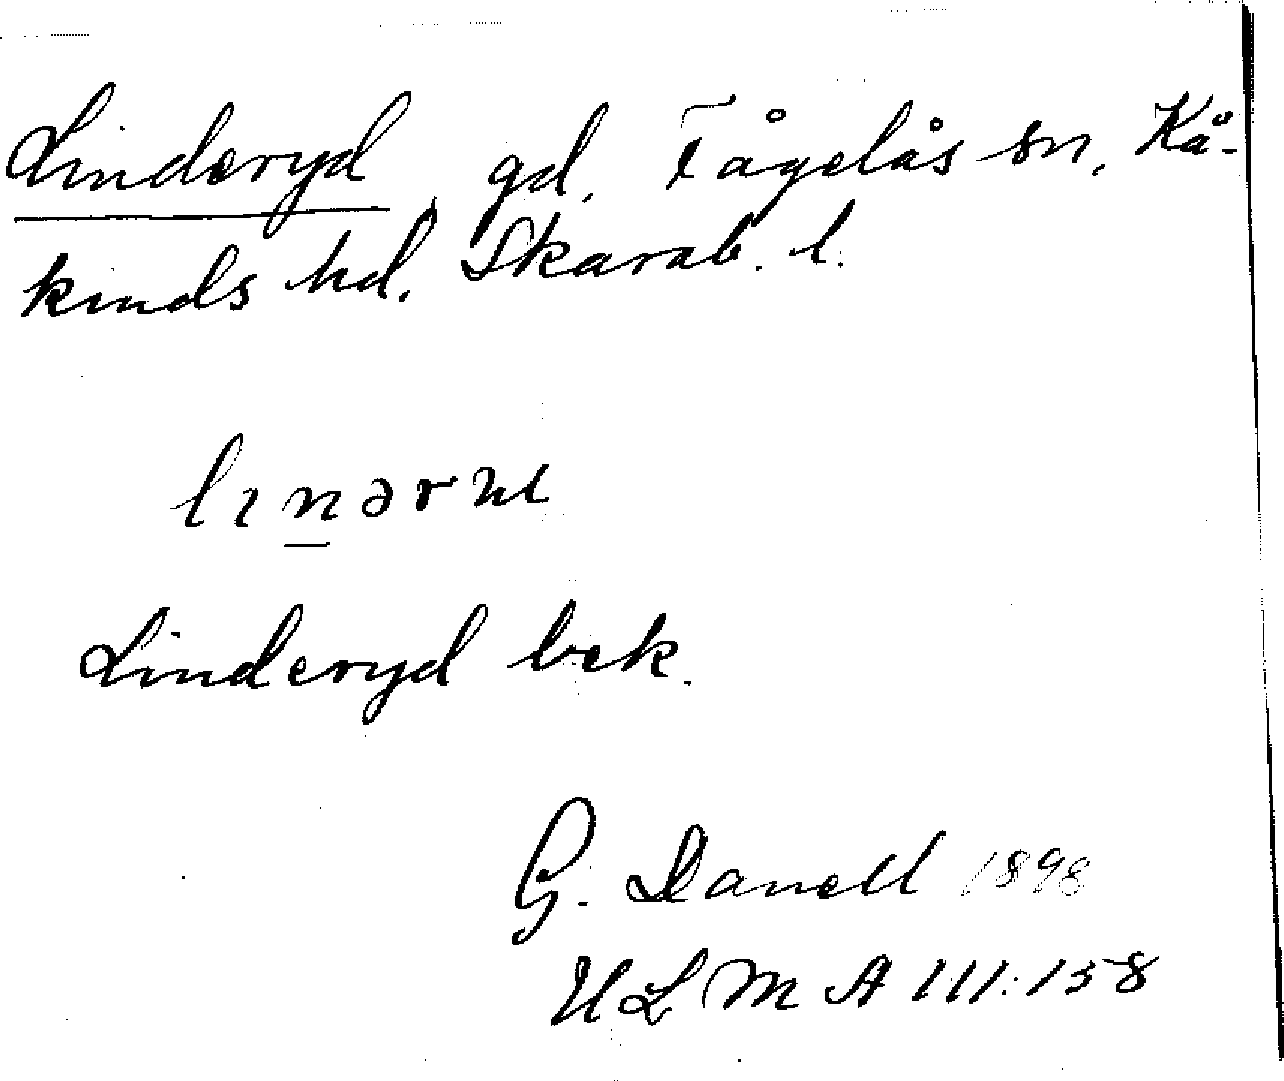 Linderyd, gd. Fågelås sn, Kå-
kinds hd. Skarab. l.
Linderyd bek.
G. Danell 1898
ULMA 111:158